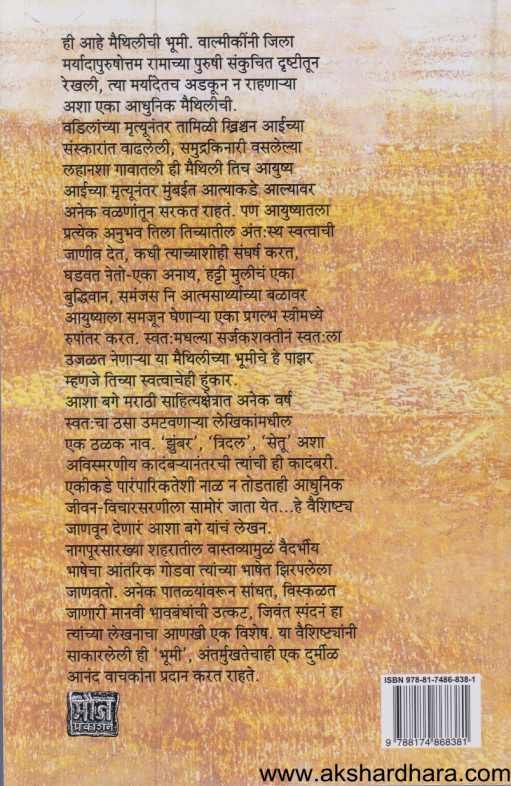 ही आहे मैथिलीची भूमी. वाल्मीकींनी जिला
मर्यादापुरुषोत्तम रामाच्या पुरुषी संकुचित दृष्टीतून
रेखली, त्या मर्यादेतच अडकून न राहणाऱ्या
अशा एका आधुनिक मैथिलीची.
वडिलांच्या मृत्यूनंतर तामिळी ख्रिश्चन आईच्या
संस्कारांत वाढलेली, समुद्रकिनारी वसलेल्या
लहानशा गावातली ही मैथिली तिच आयुष्य
आईच्या मृत्यूनंतर मुंबईत आत्याकडे आल्यावर
अनेक वळणांतून सरकत राहतं. पण आयुष्यातला
प्रत्येक अनुभव तिला तिच्यातील अंतःस्थ स्वत्वाची
जाणीव देत, कधी त्याच्याशीही संघर्ष करत,
घडवत नेतो-एका अनाथ, हट्टी मुलीचं एका
बुद्धिवान, समंजस नि आत्मसार्थ्याच्या बळावर
आयुष्याला समजून घेणाऱ्या एका प्रगल्भ स्त्रीमध्ये
रुपांतर करत. स्वतःमधल्या सर्जकशक्तीनं स्वतःला
उजळत नेणाऱ्या या मैथिलीच्या भूमीचे हे पाझर
म्हणजे तिच्या स्वत्वाचेही हुंकार.
आशा बगे मराठी साहित्यक्षेत्रात अनेक वर्ष
स्वतःचा ठसा उमटवणाऱ्या लेखिकांमधील
एक ठळक नाव. ‘झुंबर’, ‘त्रिदल’, ‘सेतू’ अशा
अविस्मरणीय कादंबऱ्यानंतरची त्यांची ही कादंबरी.
एकीकडे पारंपारिकतेशी नाळ न तोडताही आधुनिक
जीवन-विचारसरणीला सामोरं जाता येत...हे वैशिष्ट्य
जाणवून देणारं आशा बगे यांचं लेखन.
नागपूरसारख्या शहरातील वास्तव्यामुळं वैदर्भीय
भाषेचा आंतरिक गोडवा त्यांच्या भाषेत झिरपलेला
जाणवतो. अनेक पातळ्यांवरून सांधत, विस्कळत
जाणारी मानवी भावबंधांची उत्कट, जिवंत स्पंदनं हा
त्यांच्या लेखनाचा आणखी एक विशेष. या वैशिष्ट्यांनी
साकारलेली ही ‘भूमी’, अंतर्मुखतेचाही एक दुर्मीळ
आनंद वाचकांना प्रदान करत राहते.
मौज
प्रकाशन
ISBN 978-81-7486-838-1
9 788174 868381
www.akshardhara.com